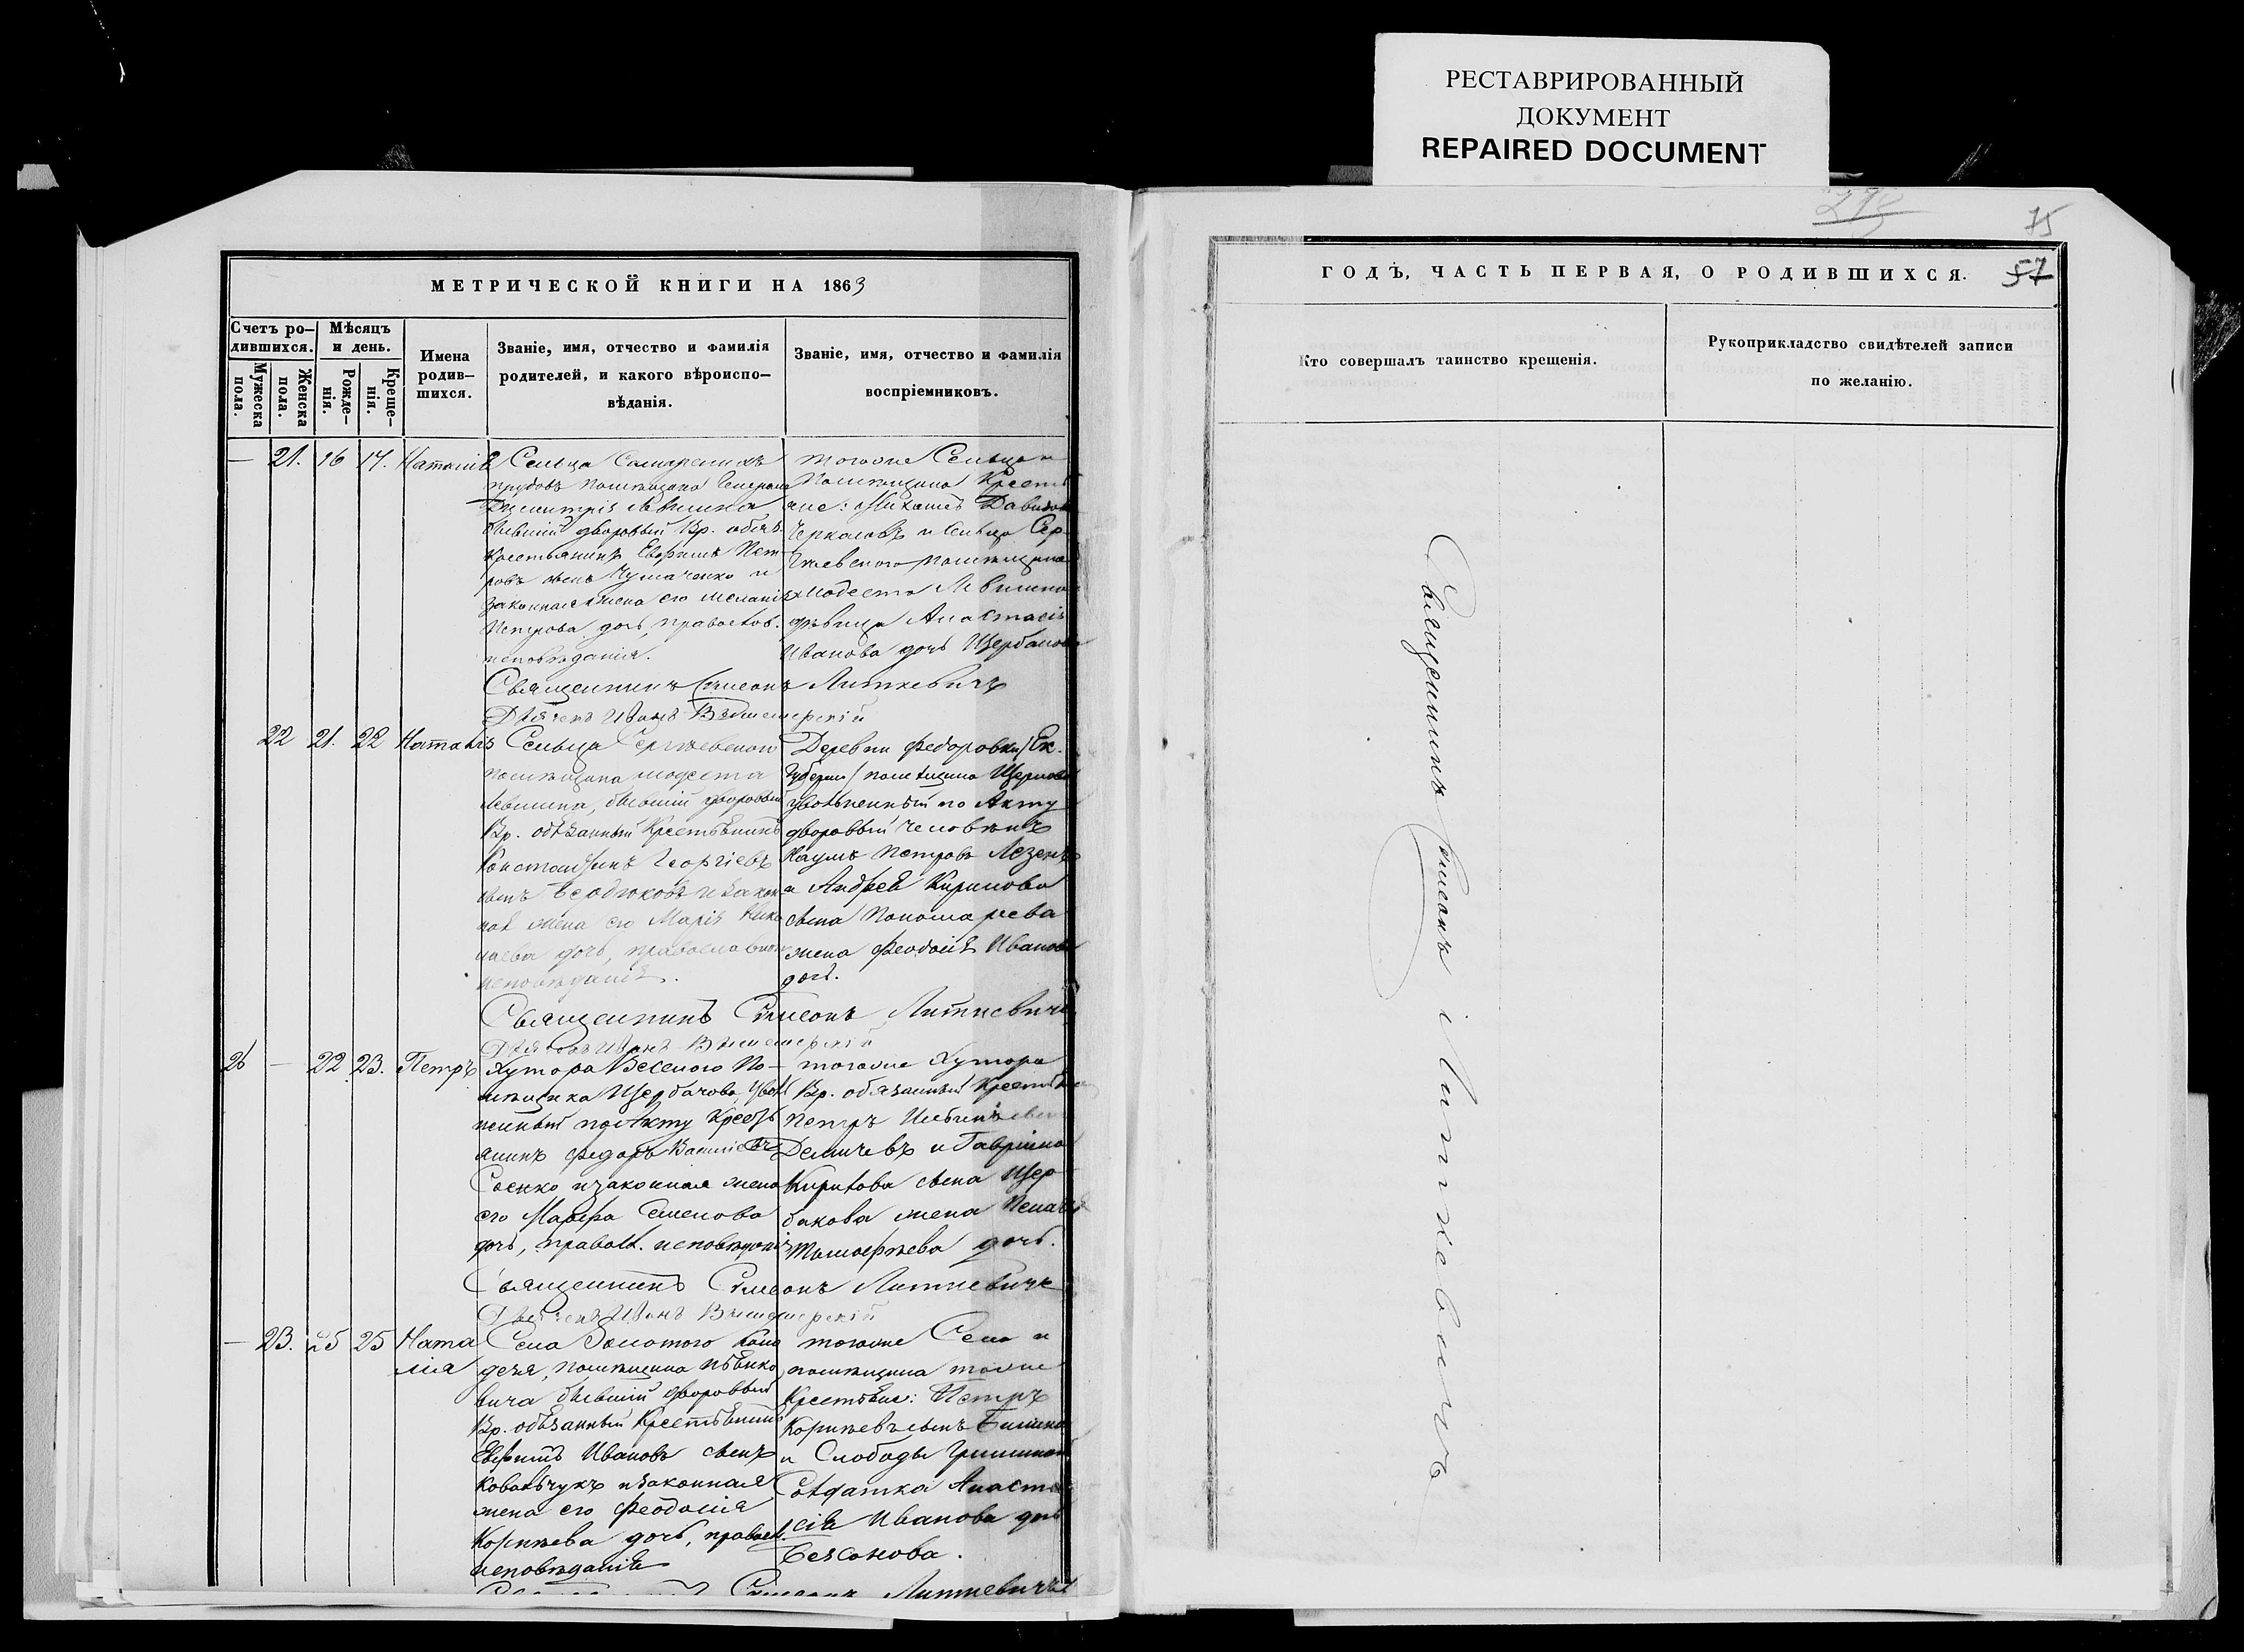 РЕСТАВРИРОВАННЫЙ
ДОКУМЕНТ
REPAIRED DOCUMENT
75
57
МЕТРИЧЕСКОЙ КНИГИ НА 1863
Счетъ ро-
дившихся.
Мужеска
пола.
Женска
пола.
Мѣсяцъ
и день.
Рожде-
нія.
Креще-
нія.
Имена
родив-
шихся.
Званіе, имя, отчество и фамилія
родителей, и какого вѣроиспо-
вѣданія.
Званіе, имя, отчество и фамилія
воспріемниковъ.
— 21. 16 17. Наталія
Сельца
прудовъ помѣщика Генерала
Димитрія Левшина
бывший дворовый Вр. обяз.
Крестьянинъ Евфимъ Пет-
ровъ сынъ Чумаченко и
законная жена его Меланія
Петрова дочь, правослов.
исповѣданія.
тогоже Сельца и
помѣщика Крестья
не: Михаилъ Давидов
Черкасовъ и Сельца Сер-
гѣевскаго помѣщика
Модеста Левшина
дѣвица Анастасія
Иванова дочь Щербакова
Священникъ Симеонъ Литкевичъ
Дьячекъ Иванъ
22 21. 22 Наталія
Сельца Сергѣевскаго
помѣщика Модеста
Левшина, бывший дворовый
Вр. обязанный Крестьянинъ
Константинъ Георгіевъ
сынъ Сердюковъ и закон
ная жена его Марія Нико
лаева дочь, православнаго
исповѣданія.
Деревни Федоровки /Ек.
Губерніи/ помѣщика
уволенный по Акту
дворовый человѣкъ
Наумъ Петровъ
и Андрея Кирилова
сына Пономарева
жена Феодосія Иванова
дочь.
Священникъ Симеонъ Литкевичъ
Дьячекъ Иванъ
26 — 22 23. Петръ
Хутора Веселого По-
мѣщика Щербачова, увол
ненный по Акту Крестья
янинъ Федоръ
Соенко и законная жена
его Марѳа Семенова
дочь, правосл. исповѣданія
тогоже Хутора
Вр. обязанный Крестьяни
Петръ
Демичевъ и Гавріила
Кирилова сына Щер
бакова жена Пелагія
Тимофѣева дочь.
Священникъ Симеонъ Литкевичъ
Дьячекъ Иванъ
— 23. 25 25 Ната
лія
Села Золотого Коло
дезя, помѣщика
вича бывший дворовый
Вр. обязанный Крестьянинъ
Евфимъ Ивановъ сынъ
Ковальчукъ и законная
жена его Феодосія
Корнѣева дочь, правосл.
исповѣданія
тогоже Села и
помѣщика тогоже
Крестьяне: Петръ
Корнѣевъ сынъ
и Слободы Гришиной
Солдатка Анаста
сія Иванова дочь
Безсонова.
Симеонъ Литкевичъ
ГОДЪ, ЧАСТЬ ПЕРВАЯ, О РОДИВШИХСЯ.
Кто совершалъ таинство крещенія.
Рукоприкладство свидѣтелей записи
по желанію.
Священникъ Симеонъ Литкевичъ